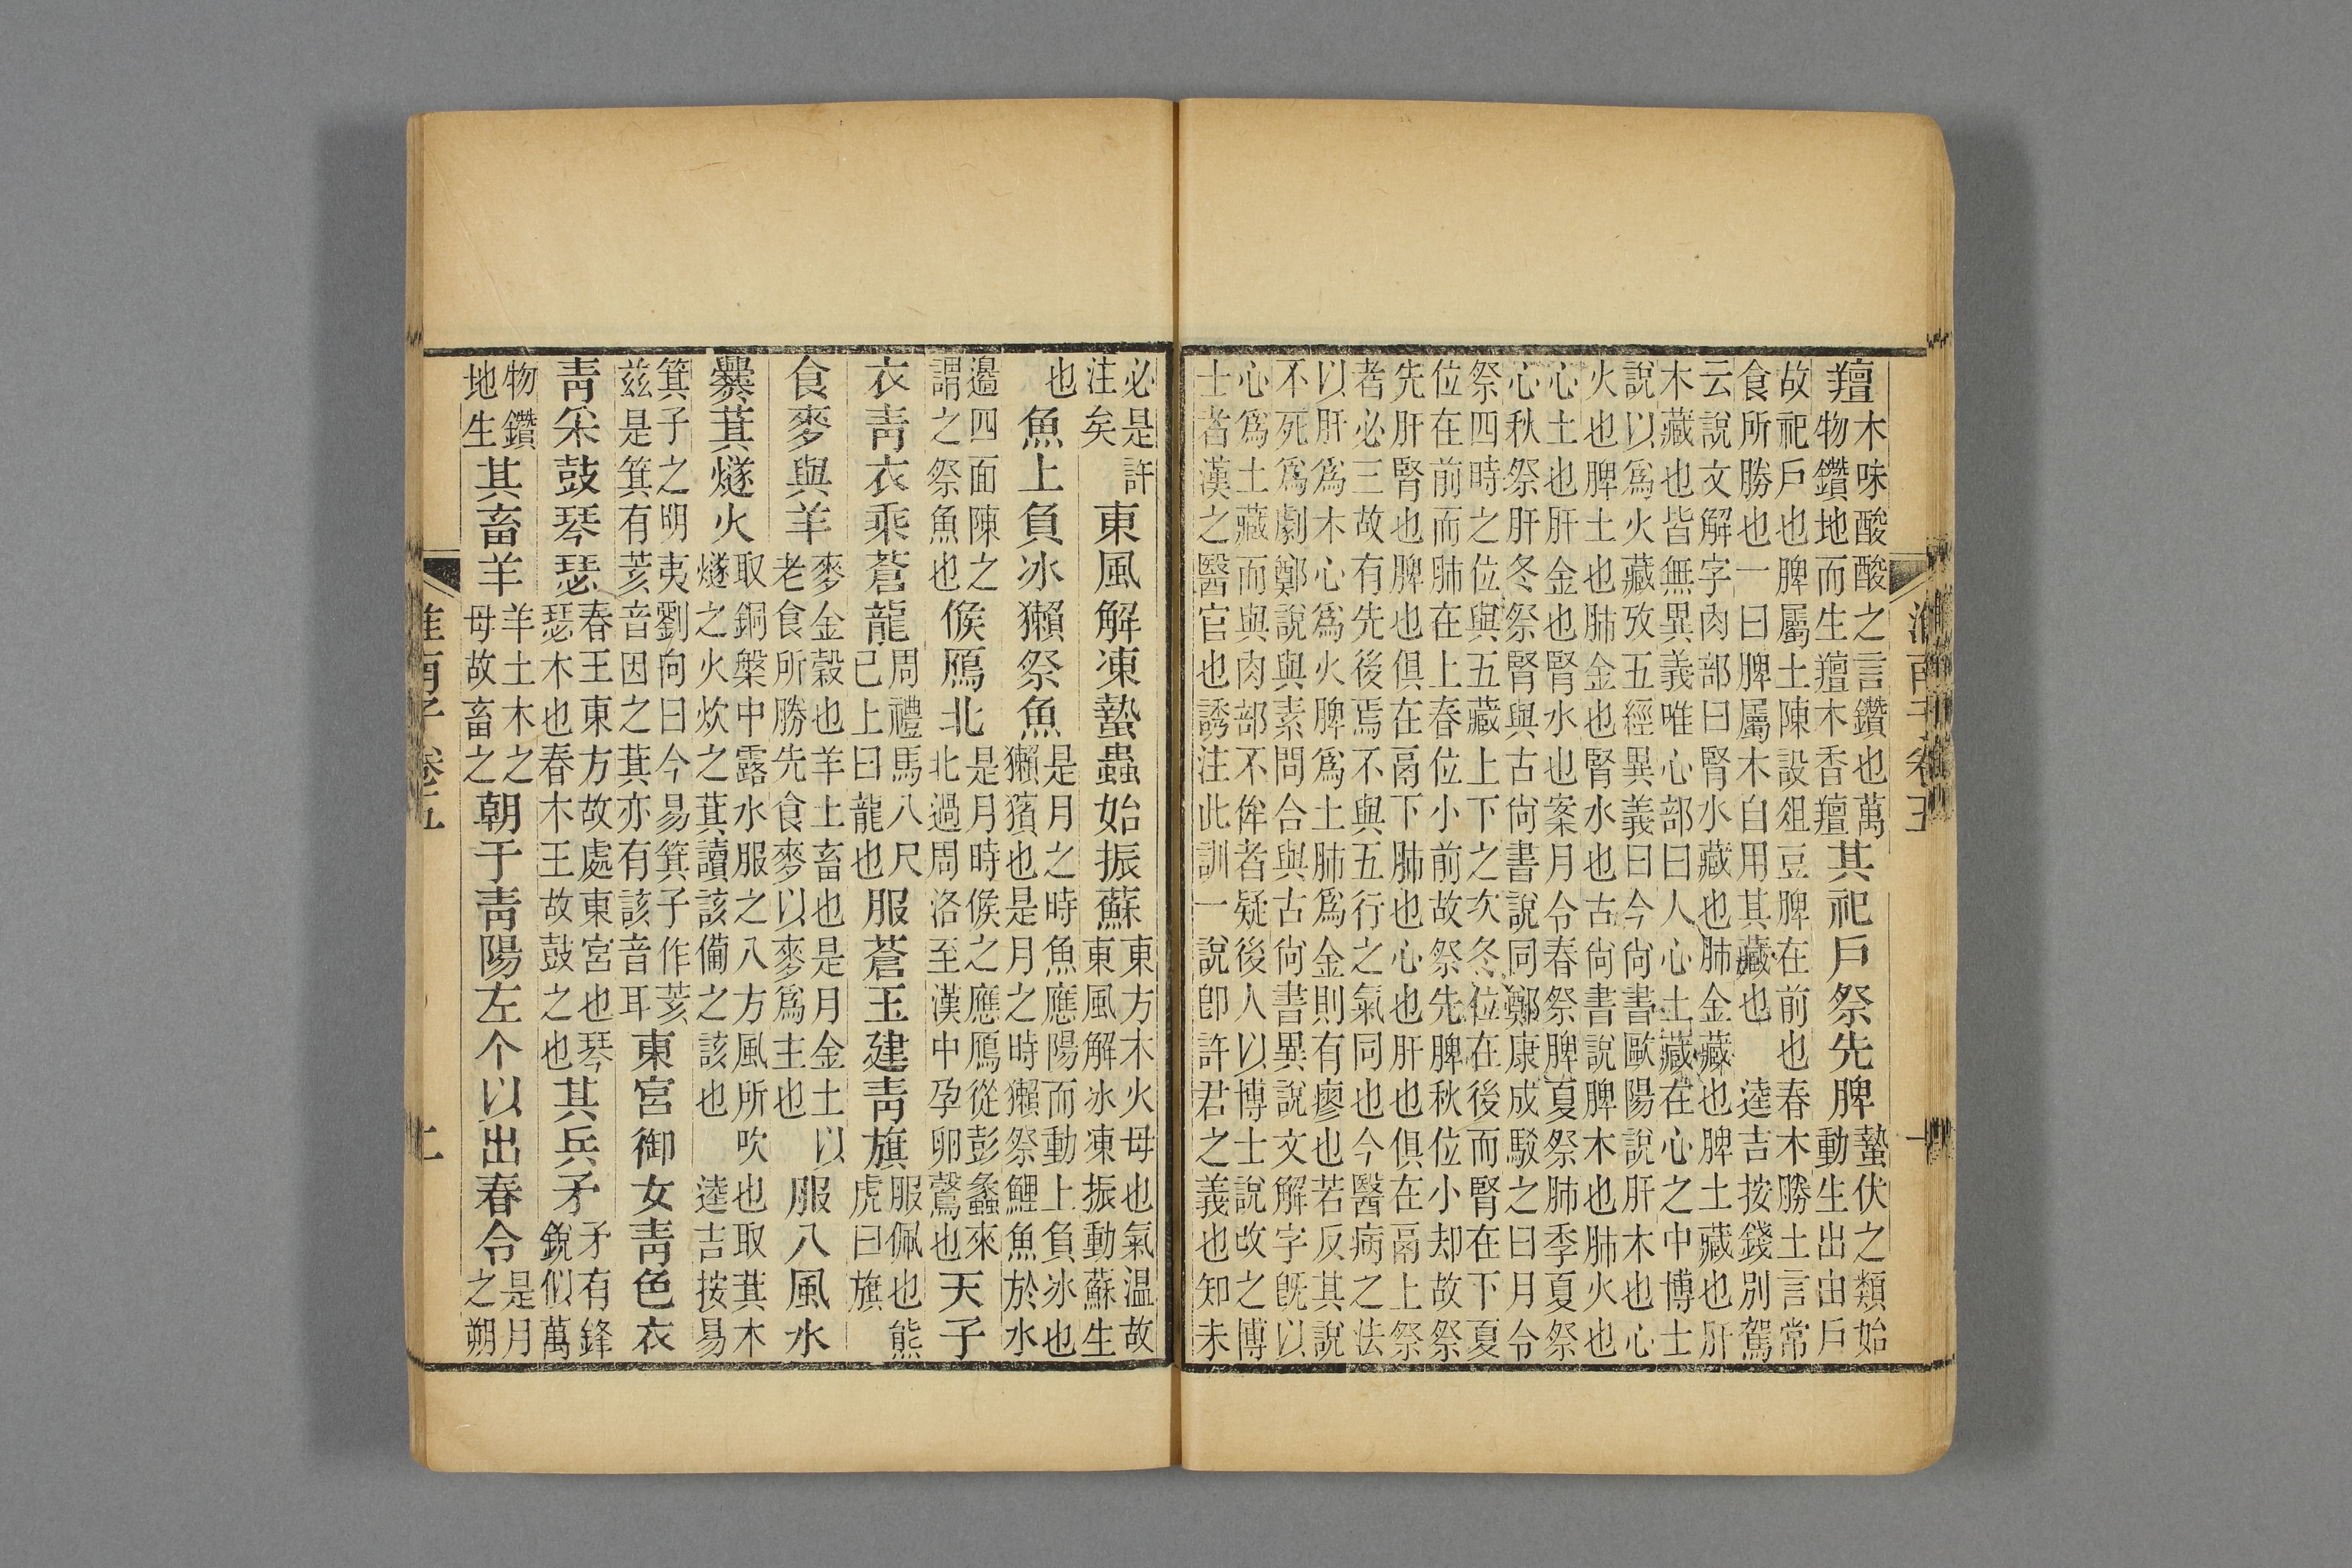 羶木味酸酸之言鑽也萬物鑽地而生羶木香羶其祀戶祭先脾蟄伏之類始動生出由戶
故祀戶也脾屬土陳設俎豆脾在前也春木勝土言常
食所勝也一曰脾屬木自用其藏也 逵吉按錢別駕
云說文解字肉部曰腎水藏也肺金藏也脾土藏也肝
木藏也皆無異義唯心部曰人心土藏在心之中博士
說以爲火藏攷五經異義曰今尚書歐陽說肝木也心
火也脾土也肺金也腎水也古尚書說脾木也肺火也
心土也肝金也腎水也案月令春祭脾夏祭肺季夏祭
心秋祭肝冬祭腎與古尚書說同鄭康成駁之曰月令
祭四時之位與五藏上下之次冬位在後而腎在下夏
位在前而肺在上春位小前故祭先脾秋位小却故祭
先肝腎也脾也俱在鬲下肺也心也肝也俱在鬲上祭
者必三故有先後焉不與五行之氣同也今醫病之法
以肝爲木心爲火脾爲土肺爲金則有瘳也若反其說
不死爲劇鄭說與素問合與古尚書異說文解字旣以
心爲土藏而與肉部不侔者疑後人以博士說改之博
士者漢之醫官也誘注此訓一說卽許君之義也知未
必是許注矣東風解凍蟄蟲始振蘇東方木火母也氣温故東風解冰凍振動蘇生
也魚上負冰獺祭魚是月之時魚應陽而動上負冰也獺獱也是月之時獺祭鯉魚於水
邉四面陳之謂之祭魚也候鴈北是月時候之應鴈從彭蠡來北過周洛至漢中孕卵鷇也天子
衣靑衣乘蒼龍周禮馬八尺已上曰龍也服蒼玉建靑旗服佩也熊虎曰旗
食麥與羊麥金穀也羊土畜也是月金土以老食所勝先食麥以麥爲主也服八風水
爨萁燧火取銅槃中露水服之八方風所吹也取萁木燧之火炊之萁讀該備之該也 逵吉按易
箕子之明夷劉向曰今易箕子作荄兹是箕有荄音因之萁亦有該音耳東宮御女靑色衣
靑采鼓琴瑟春王東方故處東宮也琴瑟木也春木王故鼓之也其兵矛矛有鋒銳似萬
物鑽地生其畜羊羊土木之母故畜之朝于靑陽左个以出春令是月之朔
淮南子卷五